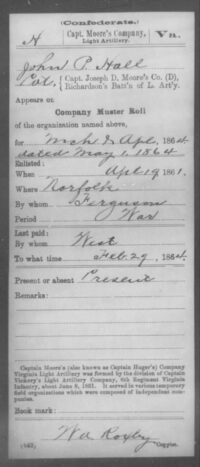 (Confederate.)
H Capt. Moore's Company, Va.
Light Artillery.
John P. Hall
Pvt., Capt. Joseph D. Moore's Co. (D),
Richardson's Batt'n of L. Art'y.
Appears on
Company Muster Roll
of the organization named above,
for Mch & Apl, 1864.
dated May 1, 1864
Enlisted:
When Apl 19, 1861.
Where Norfolk
By whom Ferguson
Period War
Last paid:
By whom West
To what time Feb 29, 1864.
Present or absent Present
Remarks:
Captain Moore's (also known as Captain Huger's) Company
Virginia Light Artillery was formed by the division of Captain
Vickery's Light Artillery Company, 6th Regiment Virginia
Infantry, about June 8, 1861. It served in various temporary
field organizations which were composed of independent com-
panies.
Book mark:
(642) Wd Roxby
Copyist.